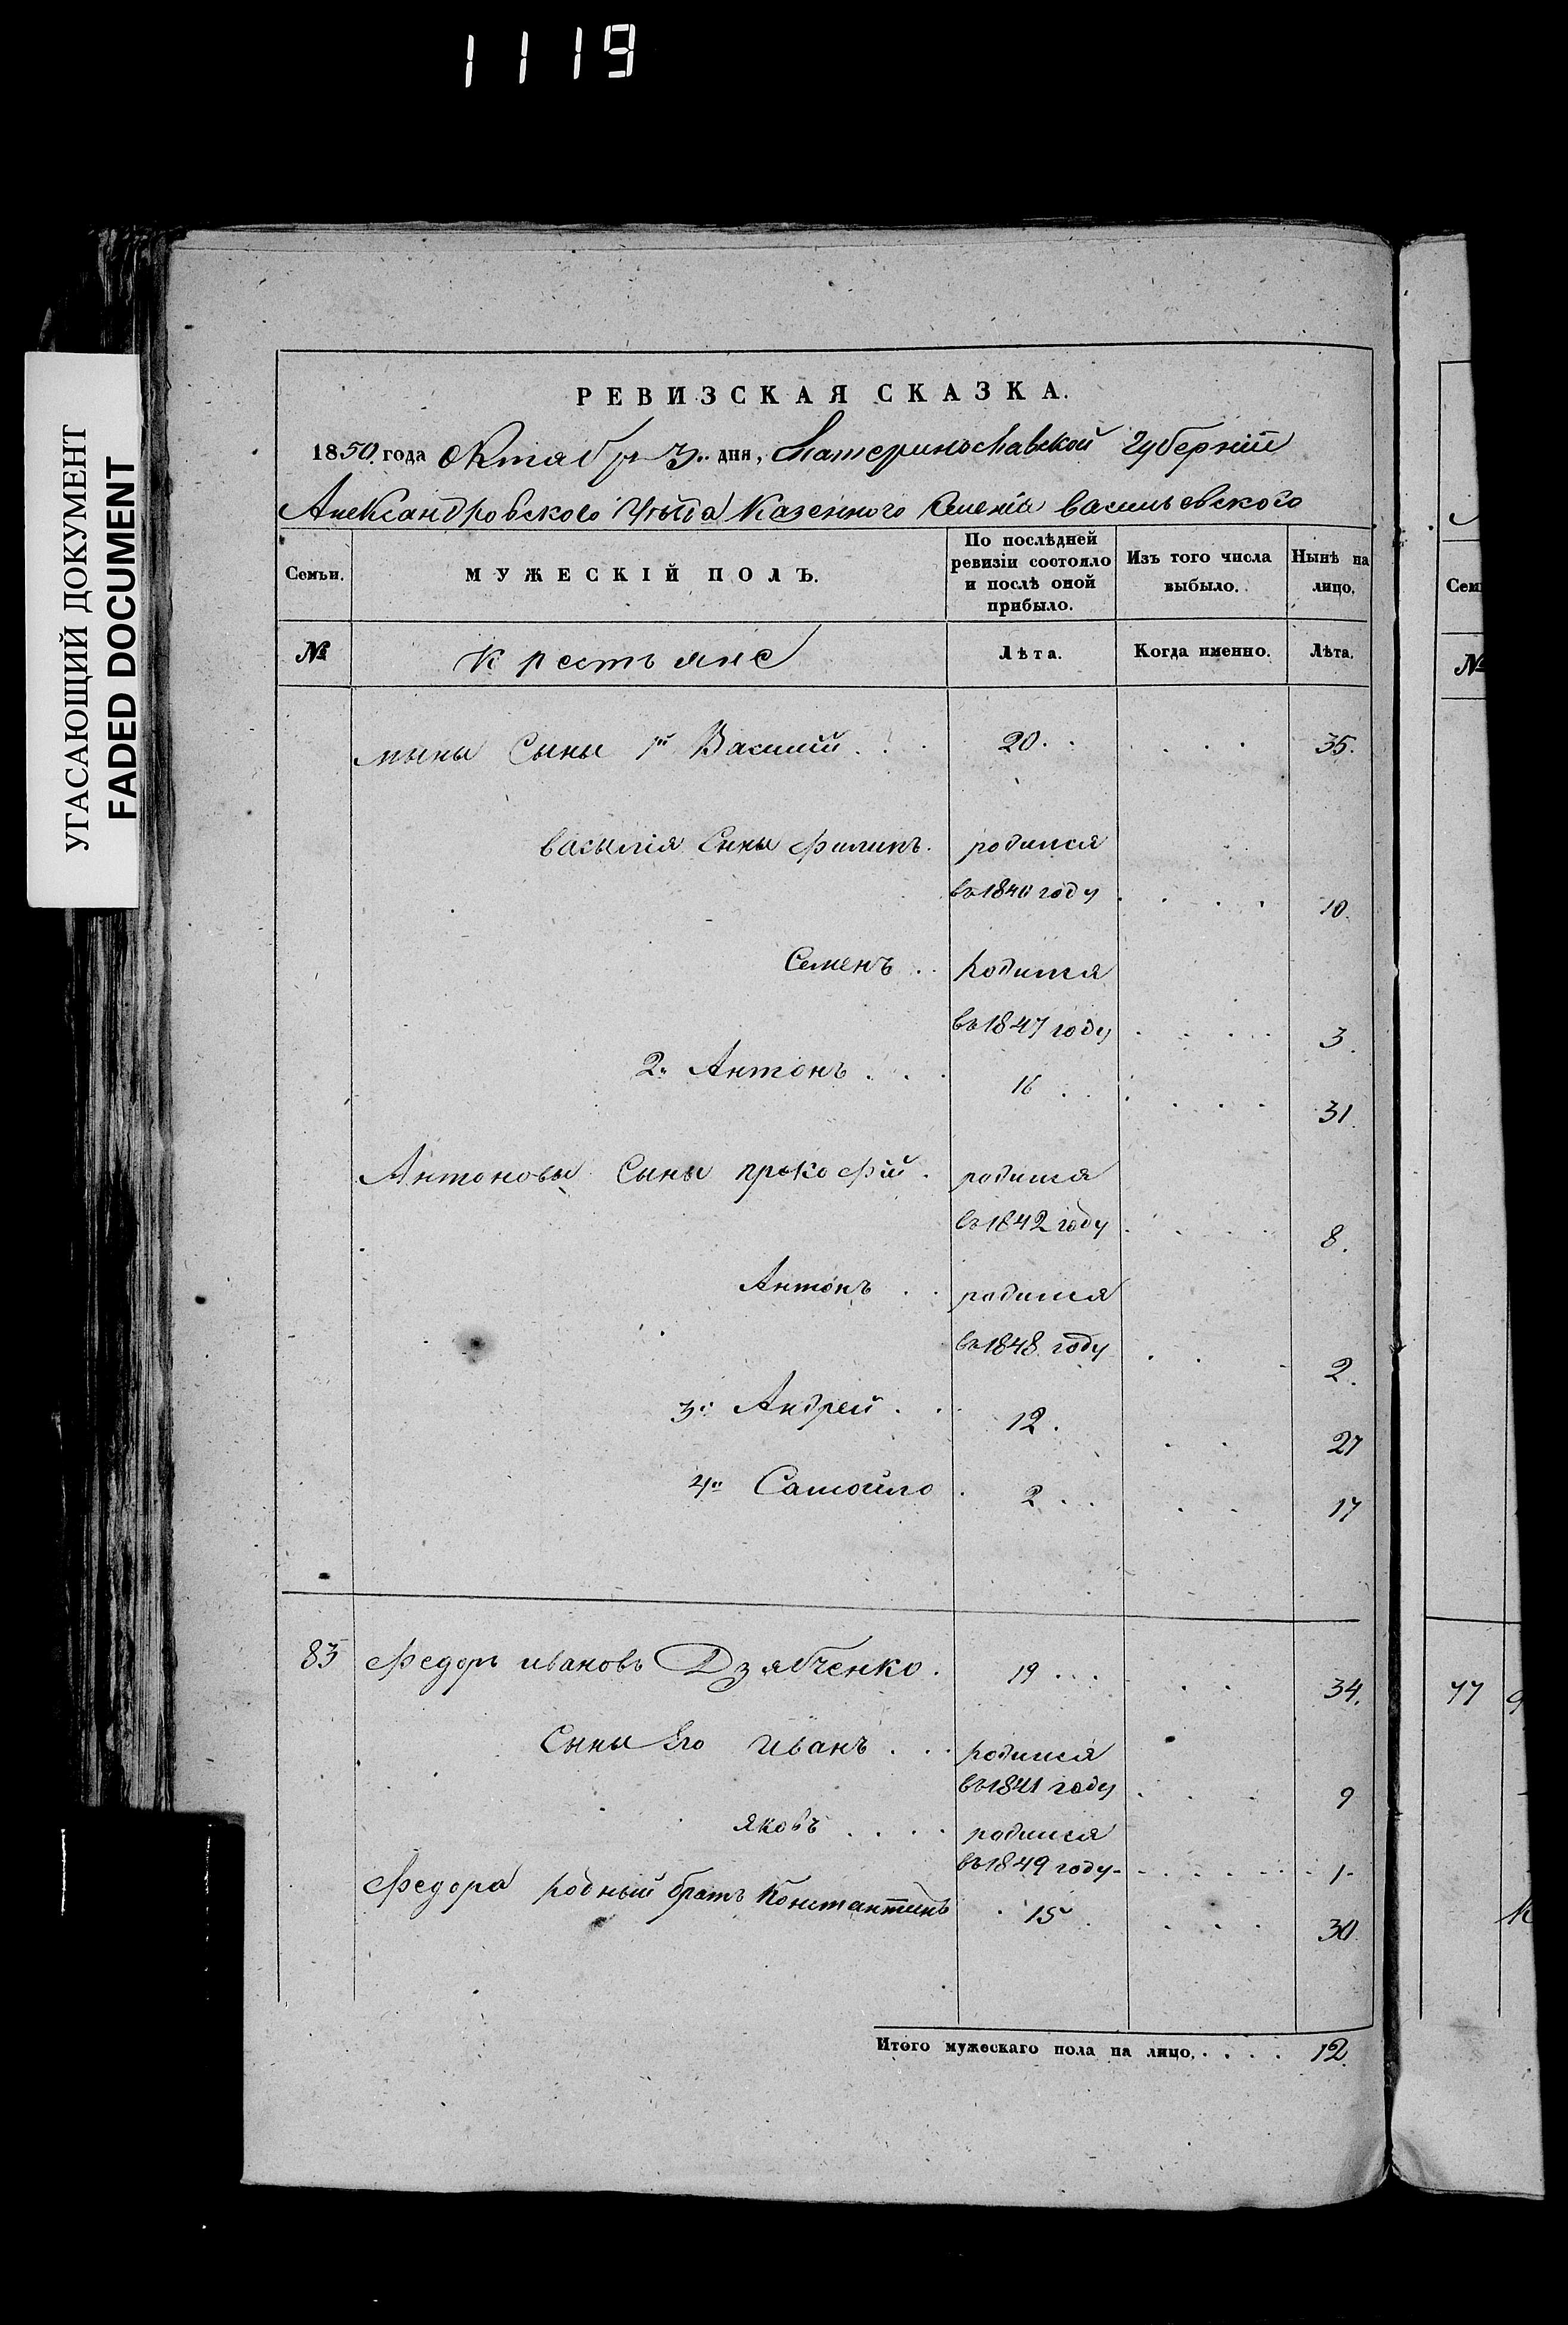 1119
УГАСАЮЩИЙ ДОКУМЕНТ
FADED DOCUMENT
РЕВИЗСКАЯ СКАЗКА.
1850. года Октября 3. дня, Екатеринославской Губерніи
Александровского Уѣзда Казенного Имѣнія васильевского
Семьи. МУЖЕСКІЙ ПОЛЪ. По послѣдней ревизіи состояло и послѣ оной прибыло. Изъ того числа выбыло. Нынѣ на лицо.
№ Крестьяне Лѣта. Когда именно. Лѣта.
мины Сыны 1й Василій . . . 20 . . . . . . 35.
василія Сыны Филипъ. родился
въ 1840 году . . . . 10.
Семенъ . . родился
въ 1847 году . . . . 3.
2й Антонъ . . . 16 . . . . . . 31.
Антоновы Сыны прокофій . родился
въ 1842 году . . . . 8.
Антонъ . . родился
въ 1848 году . . . 2.
3й Андрей . . 12 . . . 27
4й Самойло . 2 . . . . 17
83 Федоръ ивановъ Дзябченко . 19 . . . . . 34.
Сыны Его Иванъ . . . родился
въ 1841 году . . . 9
яковъ . . . . родился
въ 1849 году - . . . . . 1.
Федора родный братъ Константинъ . 15 . . . . 30.
Итого мужескаго пола на лицо, . . . . 12.
Сем
№
77